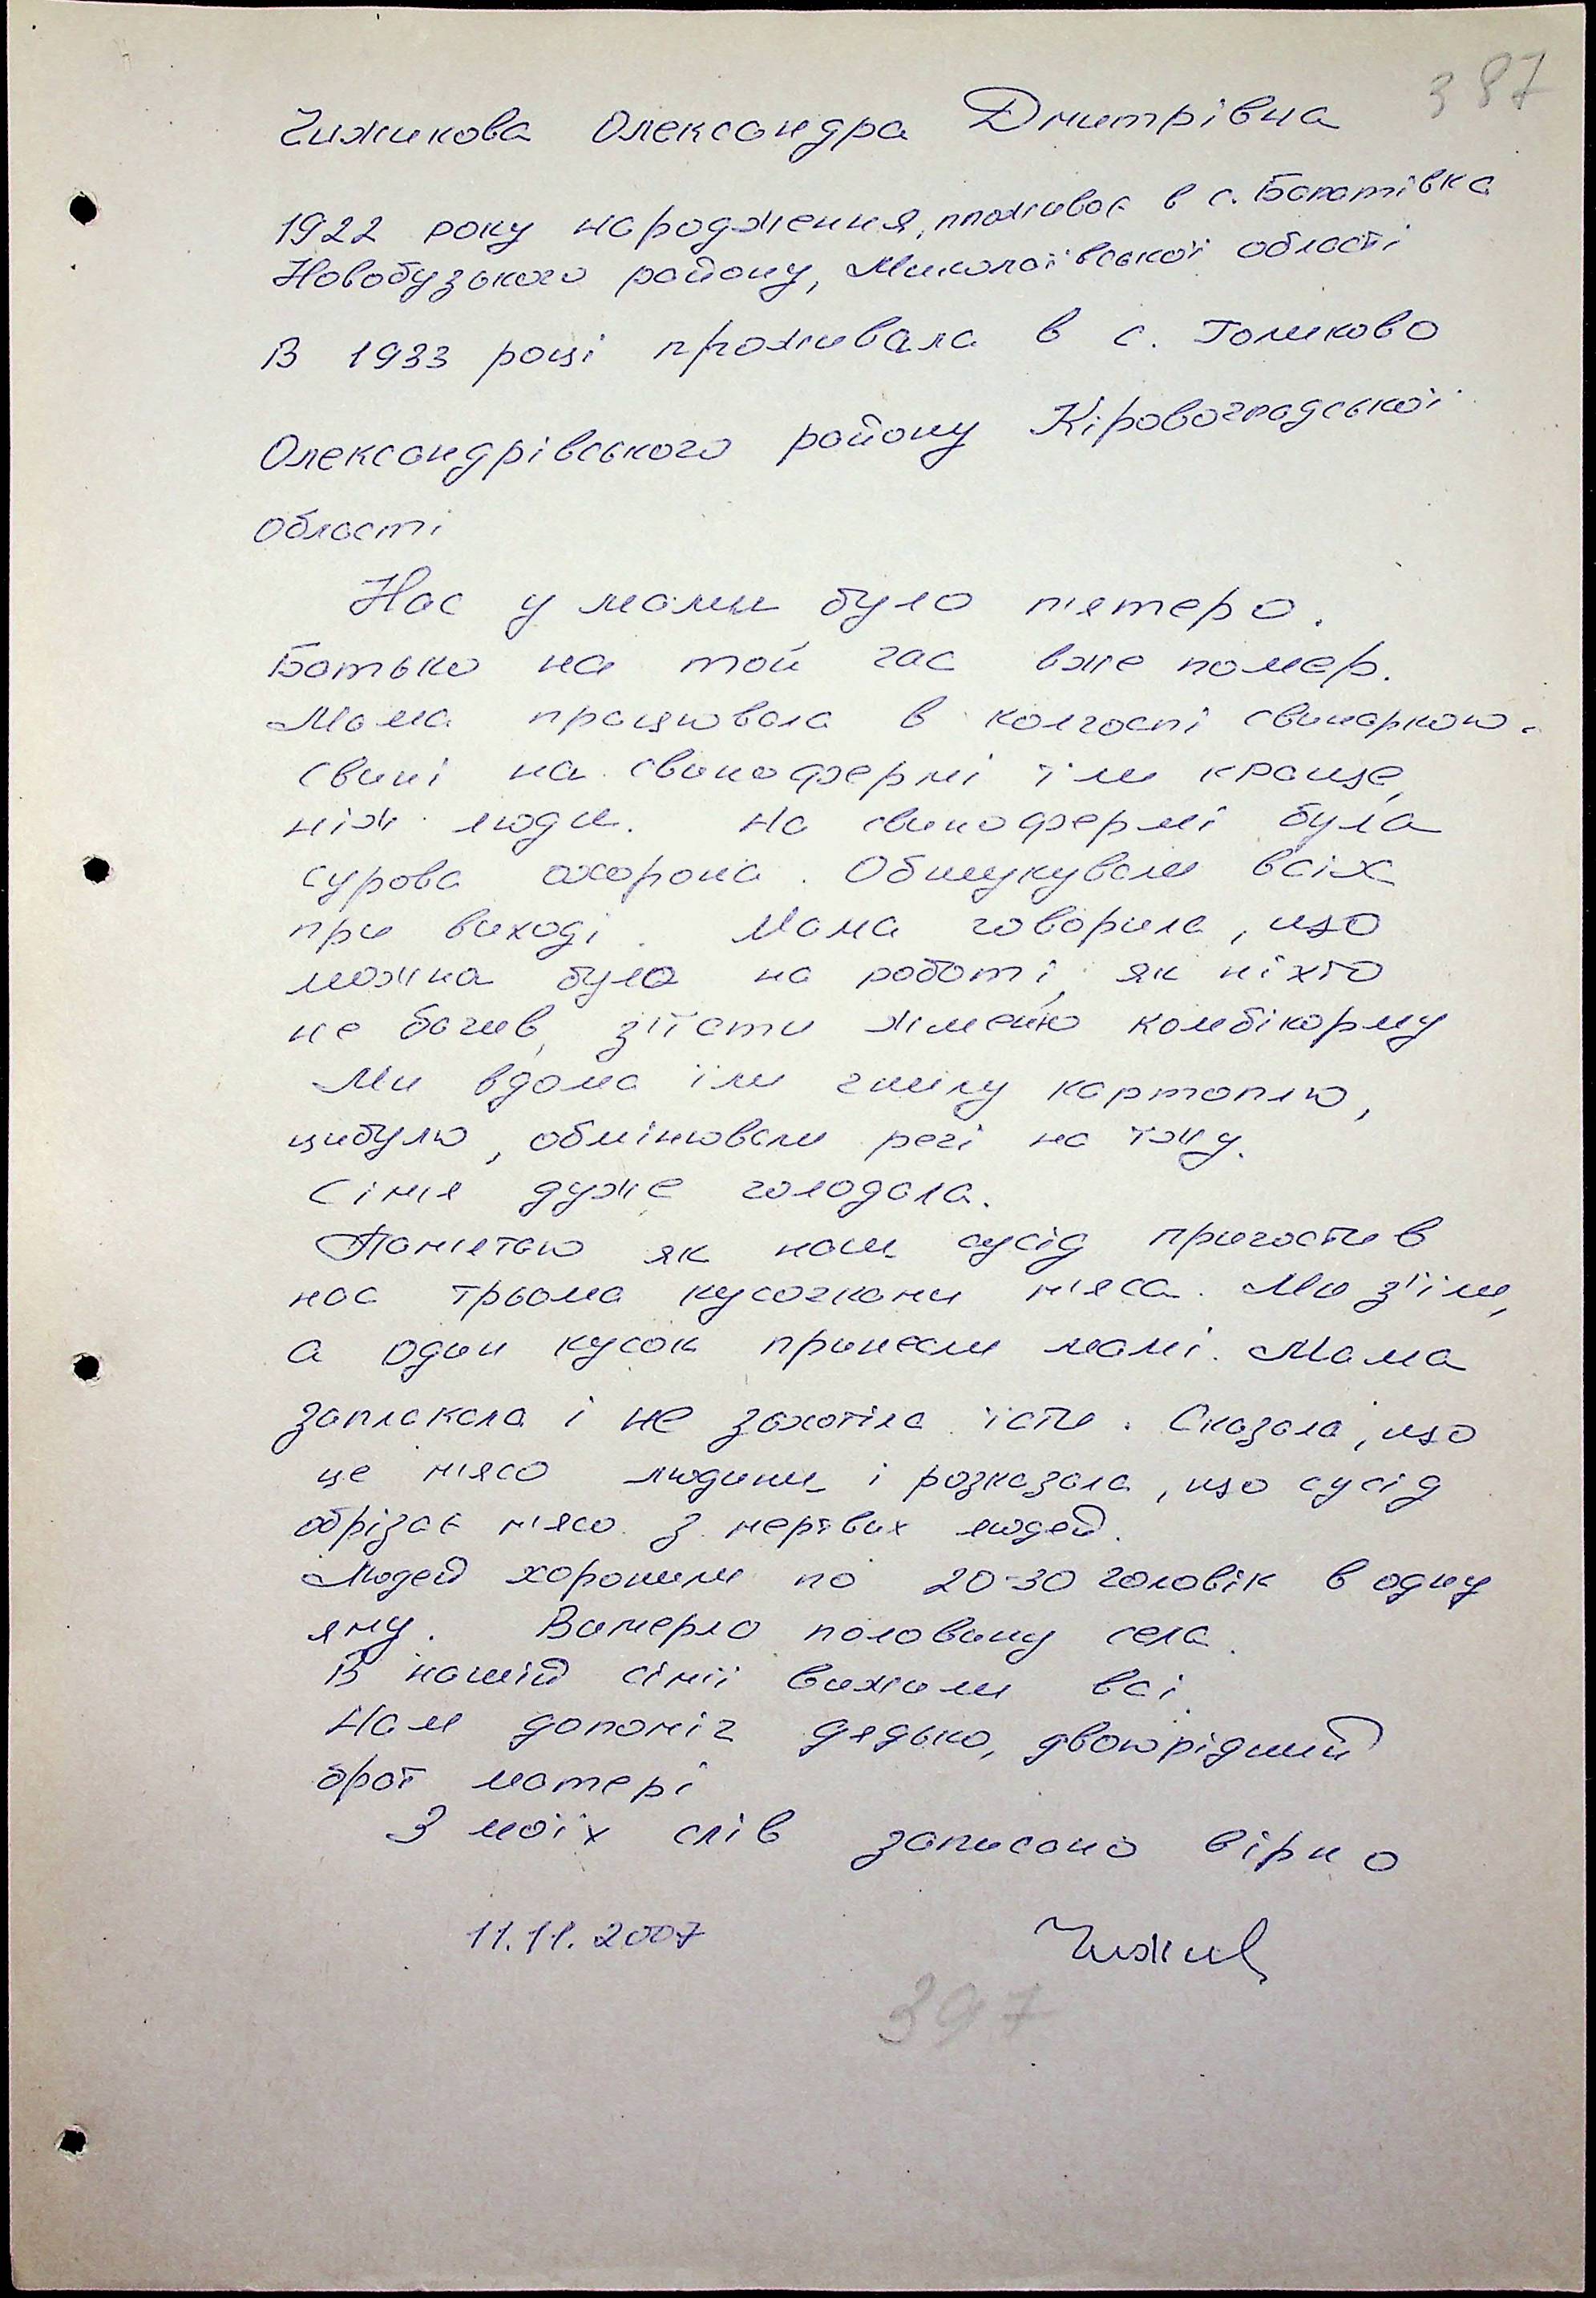 387
Чижикова Олександра Дмитрівна
1922 року народження, проживає в с. Баратівка
Новобузького району, Миколаївської області
В 1933 році проживала в с. Голиково
Олександрівського району Кіровоградської
області
Нас у мами було п'ятеро.
Батько на той час вже помер.
Мама працювала в колгоспі свинаркою.
Свині на свинофермі їли краще,
ніж люди. На свинофермі була
сурова охорона. Обшукували всіх
при виході. Мама говорила, що
можна було на роботі, як ніхто
не бачив, з'їсти жменю комбікорму
Ми вдома їли гнилу картоплю,
цибулю, обмінювали речі на їжу.
Сім'я дуже голодала.
Пам'ятаю як наш сусід пригостив
нас трьома кусочками м'яса. Ми з'їли,
а один кусок принесли мамі. Мама
заплакала і не захотіла їсти. Сказала, що
це м'ясо людини і розказала, що сусід
обрізає м'ясо з мертвих людей.
Людей хоронили по 20-30 чоловік в одну
яму. Вимерло половину села.
В нашій сім'ї вижили всі.
Нам допоміг дядько, двоюрідний
брат матері
З моїх слів записано вірно
11.11.2007 Чижик
397